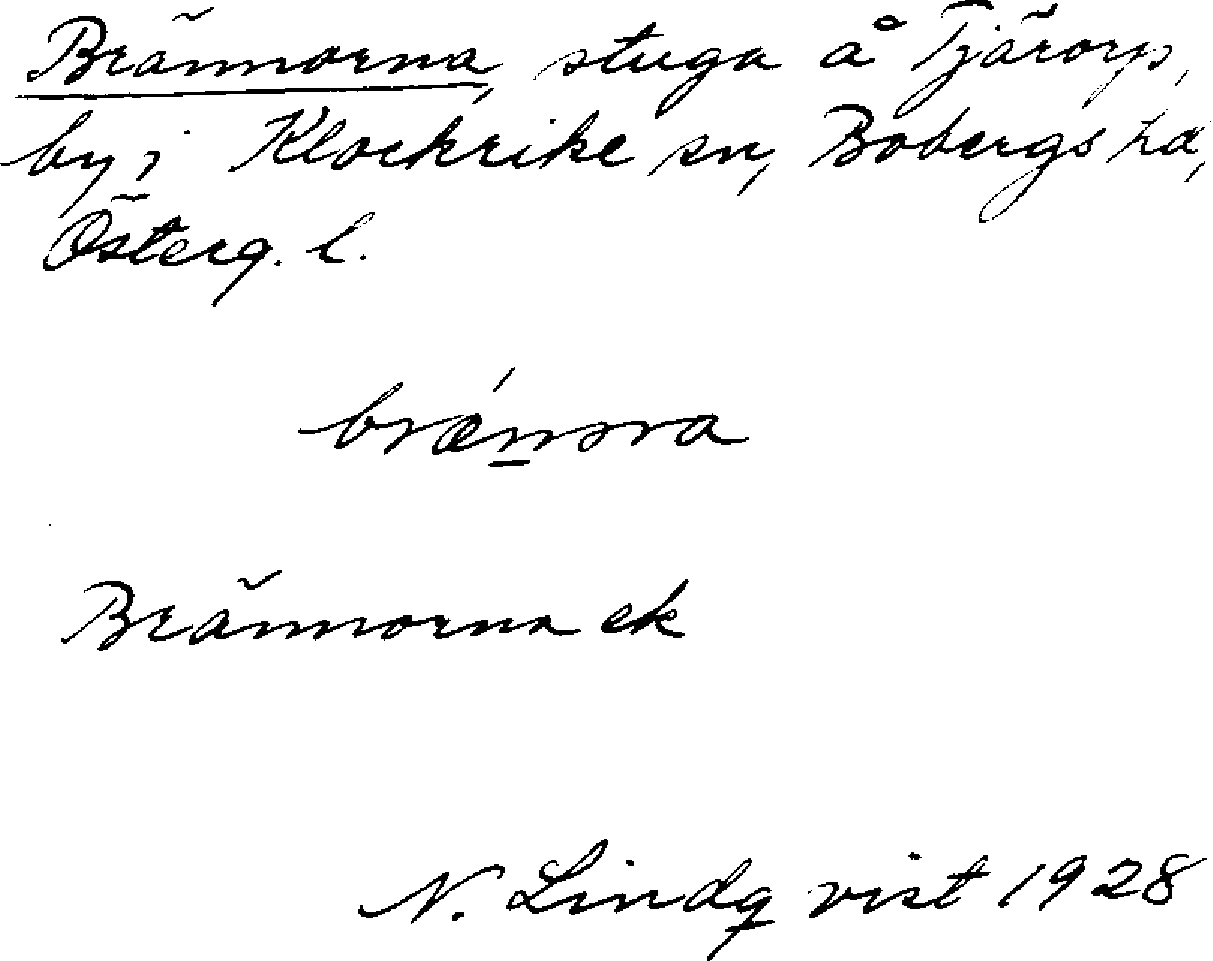 Brännorna, stuga å Tjärorp,
by i Klockrike sn, Bobergs hd,
Österg. l.
brǽnora
Brännorna ek
N. Lindqvist 1928